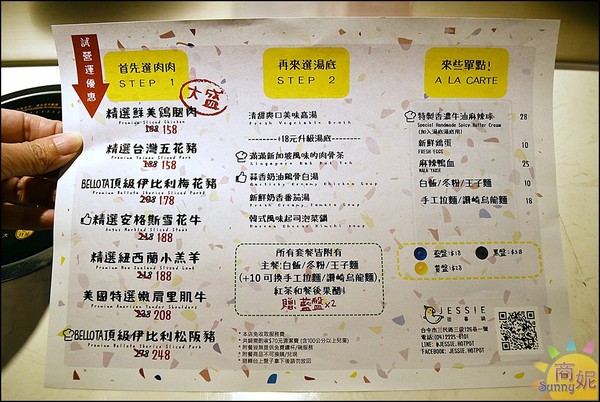 試營運優惠
首先選肉肉
STEP 1
大盛
精選鮮美鷄腿肉
Premium Sliced Chicken
188 158
精選台灣五花豬
Premium Taiwan Sliced Pork
188 158
BELLOTA頂級伊比利梅花豬
Premium Bellota Iberico Sliced Pork
208 178
精選安格斯雪花牛
Angus Marbled Sliced Steak
218 188
精選紐西蘭小羔羊
Premium New Zealand Sliced Lamb
218 188
美國特選嫩肩里肌牛
Premium American Tender Shoulders
238 208
BELLOTA頂級伊比利松阪豬
Premium Bellota Iberico Sliced Pork
278 248
再來選湯底
STEP 2
清甜爽口美味高湯
Fresh Vegetable Broth
+18元升級湯底
滿滿新加坡風味的肉骨茶
Singapore Bak Kut Teh
蒜香奶油鷄骨白湯
Garlicky Creamy Chicken Soup
新鮮奶香番茄湯
Fresh Creamy Tomato Soup
韓式風味起司泡菜鍋
所有套餐皆附有
主餐:白飯/冬粉/王子麵
(+10可換手工拉麵/讚岐烏龍麵)
紅茶和餐後果醋!
贈 藍盤x2
*本店免收取服務費
*附餐商品不可換購/兌現
來些單點!
A LA CARTE
特製香濃牛油麻辣球 28
Special Handmade Spicy Butter Cream
(加入湯底湯底用)
新鮮鷄蛋 10
FRESH EGGS
麻辣鴨血 25
MALA TASTE
白飯/冬粉/王子麵 10
手工拉麵/讚岐烏龍麵 18
藍盤:$18
黑盤:$38
黃盤:$28
JESSIE
台中市三民路三段126巷一號
電話:(04)2225-8101
LINE: @JESSIE.HOTPOT
FACEBOOK: JESSIE.HOTPOT
商妮
Sunny